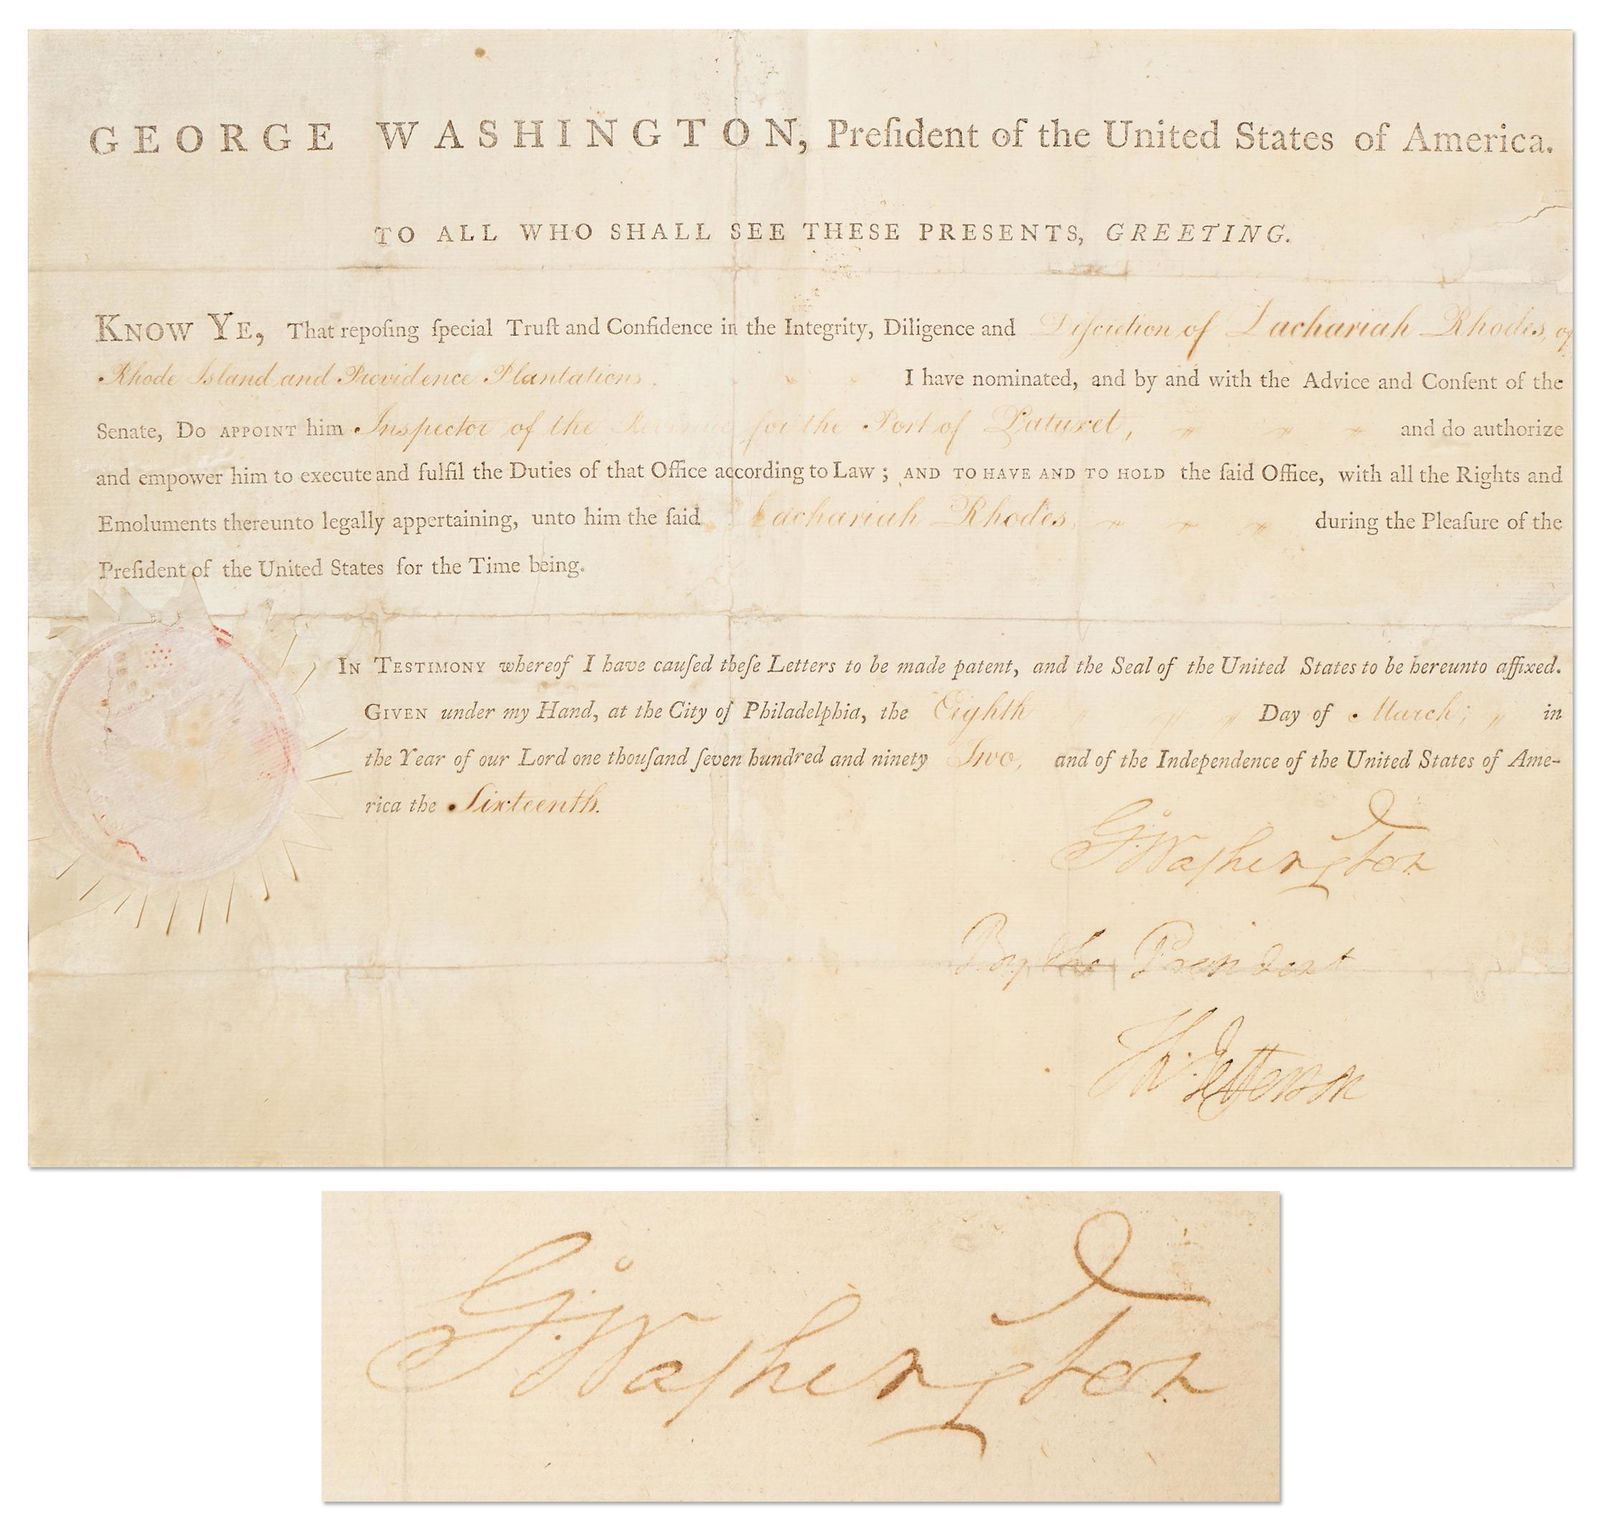 GEORGE WASHINGTON, Preſident of the United States of America.
TO ALL WHO SHALL SEE THESE PRESENTS, GREETING.
KNOW YE, That repoſing ſpecial Truſt and Confidence in the Integrity, Diligence and Diſcretion of Zachariah Rhodes, of
Rhode Island and Providence Plantations. " " I have nominated, and by and with the Advice and Conſent of the
Senate, DO APPOINT him Inspector of the Revenue for the Port of Patuxet, " " " and do authorize
and empower him to execute and fulfil the Duties of that Office according to Law; AND TO HAVE AND TO HOLD the ſaid Office, with all the Rights and
Emoluments thereunto legally appertaining, unto him the ſaid Zachariah Rhodes, " " " during the Pleaſure of the
Preſident of the United States for the Time being.
IN TESTIMONY whereof I have cauſed theſe Letters to be made patent, and the Seal of the United States to be hereunto affixed.
GIVEN under my Hand, at the City of Philadelphia, the Eighth " " " Day of March; " in
the Year of our Lord one thouſand ſeven hundred and ninety Two, and of the Independence of the United States of Ame-
rica the Sixteenth.
Go: Waſhington
By the President
Th: Jefferson
Go: Waſhington